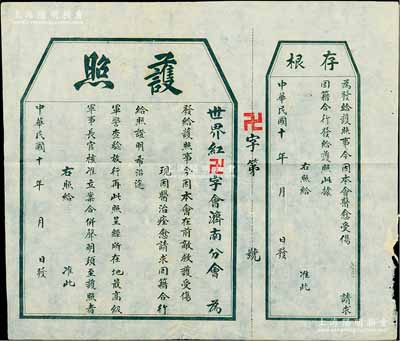 上海陽明拍賣
護照
世界紅卍字會濟南分會 為
發給護照事今因本會在前敵救護受傷
現因醫治痊愈請求回籍合行
給照證明希沿途
軍警查驗放行再此照呈經所在地最高級
軍事長官核准立案合併聲明須至護照者
右照給 准此
中華民國十 年 月 日發
卍字第 號
存根
為發給護照事今因本會醫愈受傷 請求
回籍合行發給護照此錄
右照給 准此
中華民國十 年 月 日發